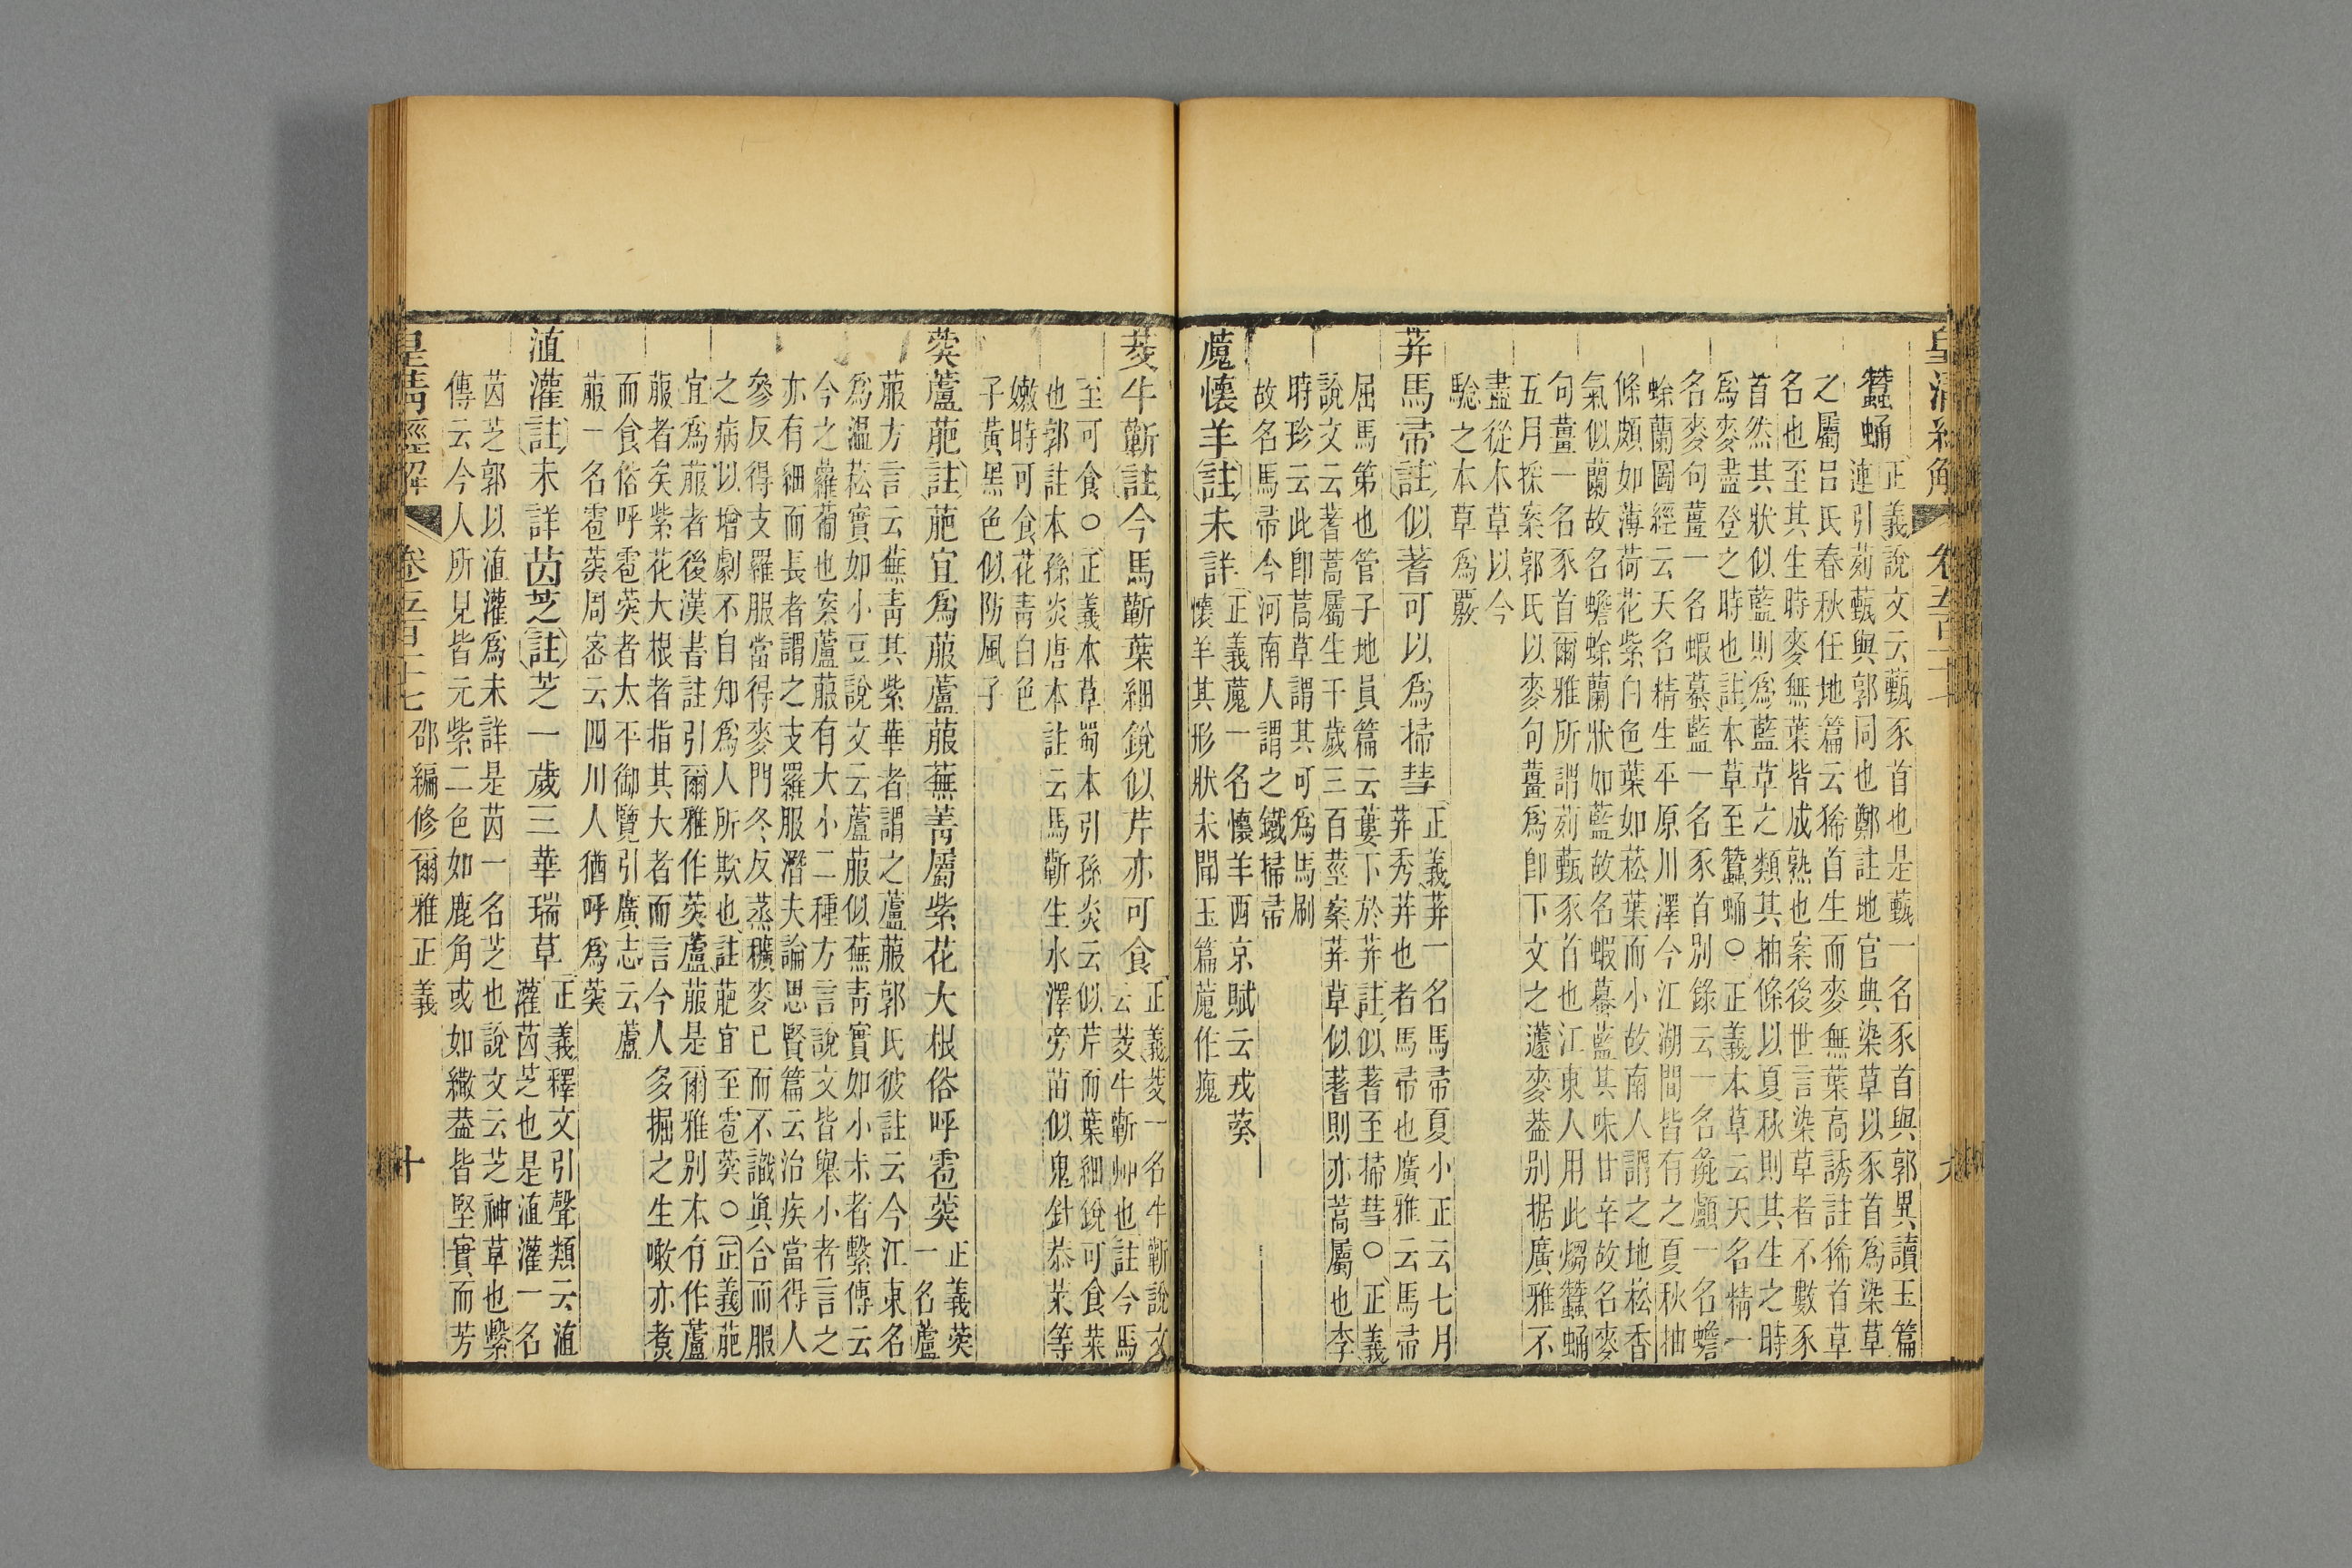 皇清經解 卷五百二十七
蠶蛹
正義說文云薽豕首也是薽一名豕首與郭異讀玉篇
連引茢薽與郭同也鄭註地官典染草以豕首為染草
之屬呂氏春秋任地篇云狶首生而麥無葉高誘註狶首草
名也至其生時麥無葉皆成熟也案後世言染草者不數豕
首然其狀似藍則為藍草之類其抽條以夏秋則其生之時
為麥盡登之時也註本草至蠶蛹○正義本草云天名精一
名麥句薑一名蝦蟇藍一名豕首別錄云一名彘顱一名蟾
蜍蘭圖經云天名精生平原川澤今江湖間皆有之夏秋抽
條頗如薄荷花紫白色葉如菘葉而小故南人謂之地菘香
氣似蘭故名蟾蜍蘭狀如藍故名蝦蟇藍其味甘辛故名麥
句薑一名豕首爾雅所謂茢薽豕首也江東人用此㷟蠶蛹
五月採案郭氏以麥句薑為卽下文之蘧麥葢別据廣雅不
盡從本草以今
驗之本草為覈
荓馬帚註似蓍可以為掃彗
正義荓一名馬帚夏小正云七月
荓秀荓也者馬帚也廣雅云馬帚
屈馬第也管子地員篇云蔞下於荓註似蓍至掃彗○正義
說文云蓍蒿屬生千歲三百莖案荓草似蓍則亦蒿屬也李
時珍云此卽蒿草謂其可為馬刷
故名馬帚今河南人謂之鐵掃帚
藱懷羊註未詳
正義藱一名懷羊西京賦云戎葵
懷羊其形狀未聞玉篇藱作瘣
茭牛蘄註今馬蘄葉細銳似芹亦可食
正義茭一名牛蘄說文
云茭牛蘄艸也註今馬
至可食○正義本草蜀本引孫炎云似芹而葉細銳可食菜
也郭註本孫炎唐本註云馬蘄生水澤旁苗似鬼針菾菜等
嫩時可食花青白色
子黃黑色似防風子
葖蘆萉註萉宜為菔蘆菔蕪菁屬紫花大根俗呼雹葖
正義葖
一名蘆
菔方言云蕪菁其紫華者謂之蘆菔郭氏彼註云今江東名
為溫菘實如小豆說文云蘆菔似蕪菁實如小尗者繫傳云
今之蘿蔔也案蘆菔有大小二種方言說文皆舉小者言之
亦有細而長者謂之支羅服潛夫論思賢篇云治疾當得人
參反得支羅服當得麥門冬反蒸穬麥已而不識眞合而服
之病以增劇不自知為人所欺也註萉宜至雹葖○正義萉
宜為菔者後漢書註引爾雅作葖蘆菔是爾雅別本有作蘆
菔者矣紫花大根者指其大者而言今人多掘之生噉亦煮
而食俗呼雹葖者太平御覽引廣志云蘆
菔一名雹葖周密云四川人猶呼為葖
淔灌註未詳茵芝註芝一歲三華瑞草
正義釋文引聲類云淔
灌茵芝也是淔灌一名
茵芝郭以淔灌為未詳是茵一名芝也說文云芝神草也繫
傳云今人所見皆元紫二色如鹿角或如繖葢皆堅實而芳
皇清經解 卷五百二十七 邵編修爾雅正義 十